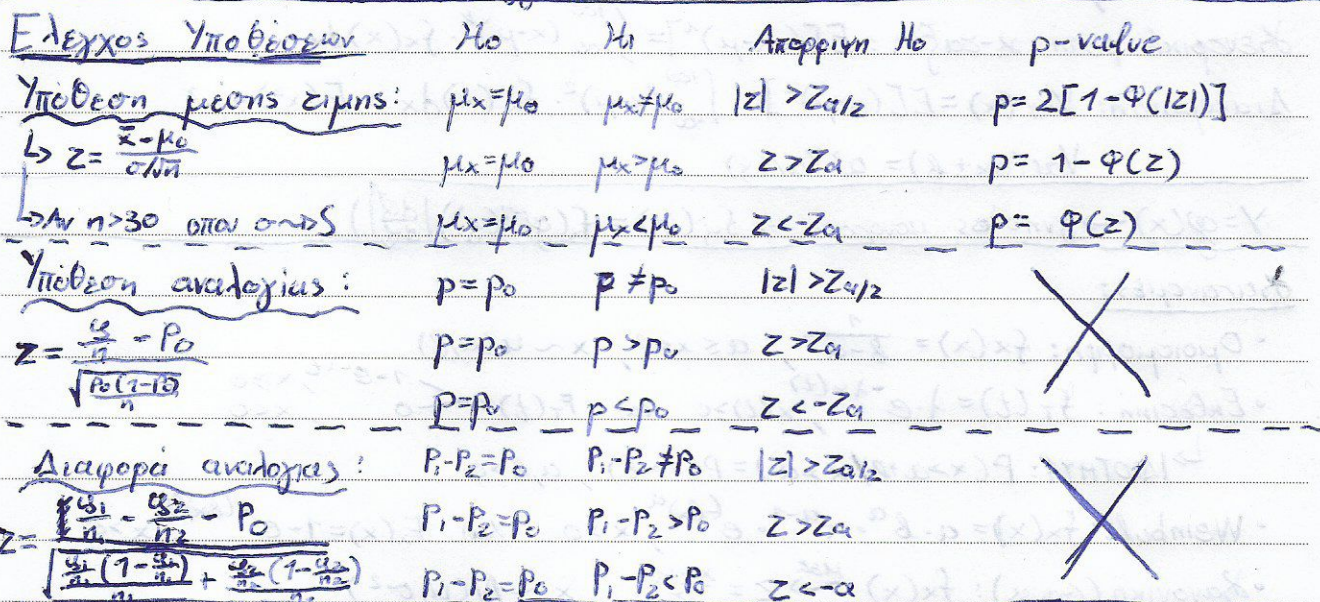 Ελεγχος Υποθέσεων H₀ H₁ Απορριψη H₀ p-value
Υπόθεση μέσης τιμης: μx=μ₀ μx≠μ₀ |z| >Za/2 p= 2[1-Φ(|z|)]
↳ z= (x̄-μ₀)/(σ/√n) μx=μ₀ μx>μ₀ z>Za p= 1-Φ(z)
↳ Αν n>30 οπου σ~>S μx=μ₀ μx<μ₀ z<-Za p= Φ(z)
Υπόθεση αναλογίας: p=p₀ p≠p₀ |z|>Za/2
z= (y/n - P₀)/√(P₀(1-P₀)/n) p=p₀ p>p₀ z>Za
p=p₀ p<p₀ z<-Za
Διαφορά αναλογιας: P₁-P₂=P₀ P₁-P₂≠P₀ |z|>Za/2
z= (y₁/n₁ - y₂/n₂ - P₀)/√(y₁/n₁(1-y₁/n₁)/n₁ + y₂/n₂(1-y₂/n₂)/n₂) P₁-P₂=P₀ P₁-P₂>P₀ z>Za
P₁-P₂=P₀ P₁-P₂<P₀ z<-a